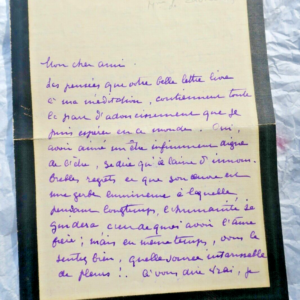 Mon cher ami.
Les pensées que votre belle lettre livre
à ma méditation, contiennent toute
la part d'adoucissement que je
puis espérer en ce monde. Oui,
avoir aimé un être infiniment digne
de l'être, se dire qu'il laisse d'innom-
brables regrets et que son œuvre est
une gerbe lumineuse à laquelle
pendant longtemps, l'humanité se
guidera c'est de quoi avoir l'âme
fière; mais en même temps, vous le
sentez bien, quelle source intarissable
de pleurs! À vous dire vrai, je